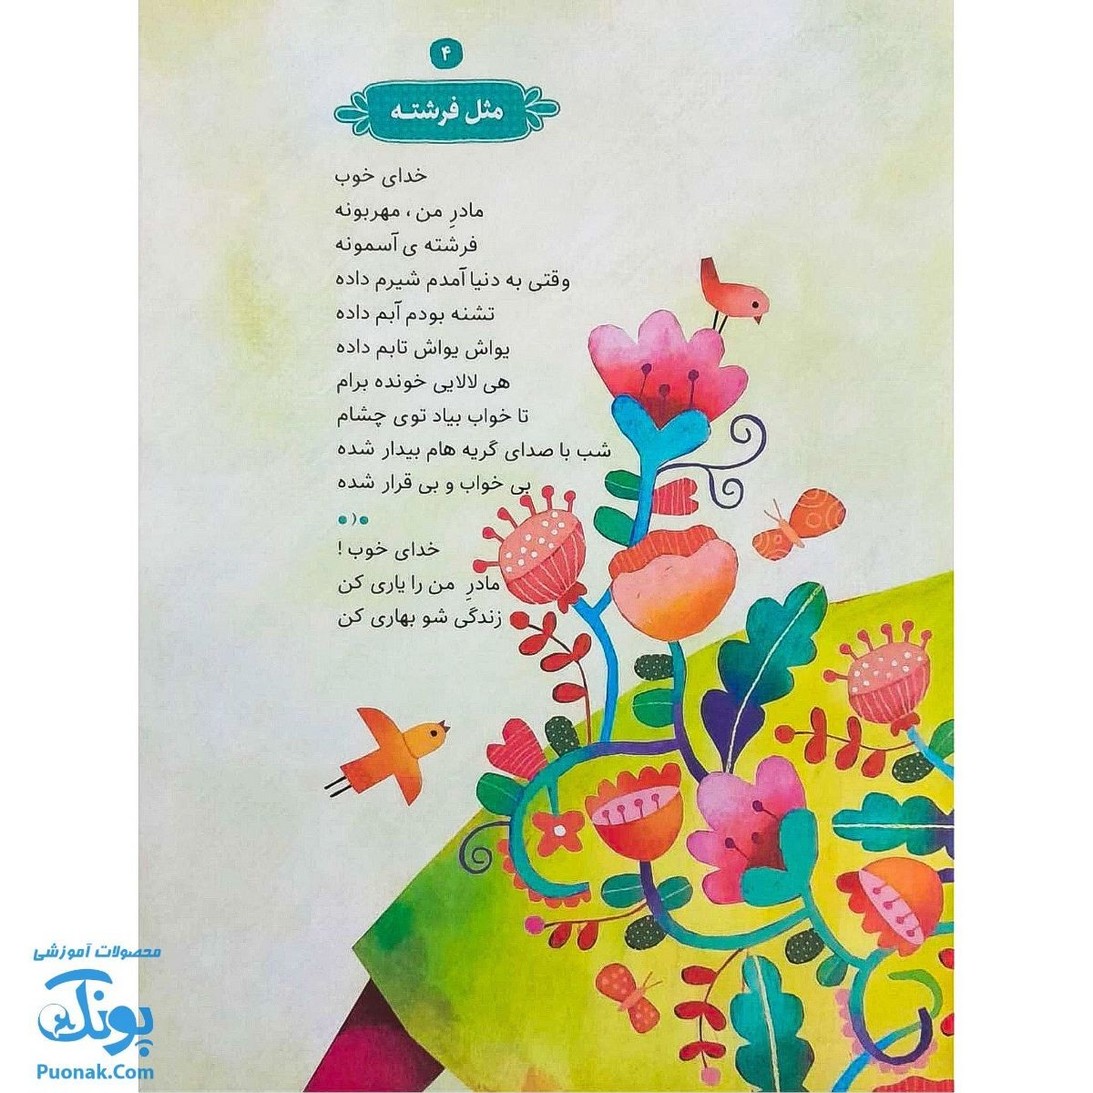 ۴
مثل فرشته
خدای خوب
مادرِ من ، مهربونه
فرشته ی آسمونه
وقتی به دنیا آمدم شیرم داده
تشنه بودم آبم داده
یواش یواش تابم داده
هی لالایی خونده برام
تا خواب بیاد توی چشام
شب با صدای گریه هام بیدار شده
بی خواب و بی قرار شده
خدای خوب !
مادرِ من را یاری کن
زندگی شو بهاری کن
محصولات آموزشی
پونک
Puonak.Com